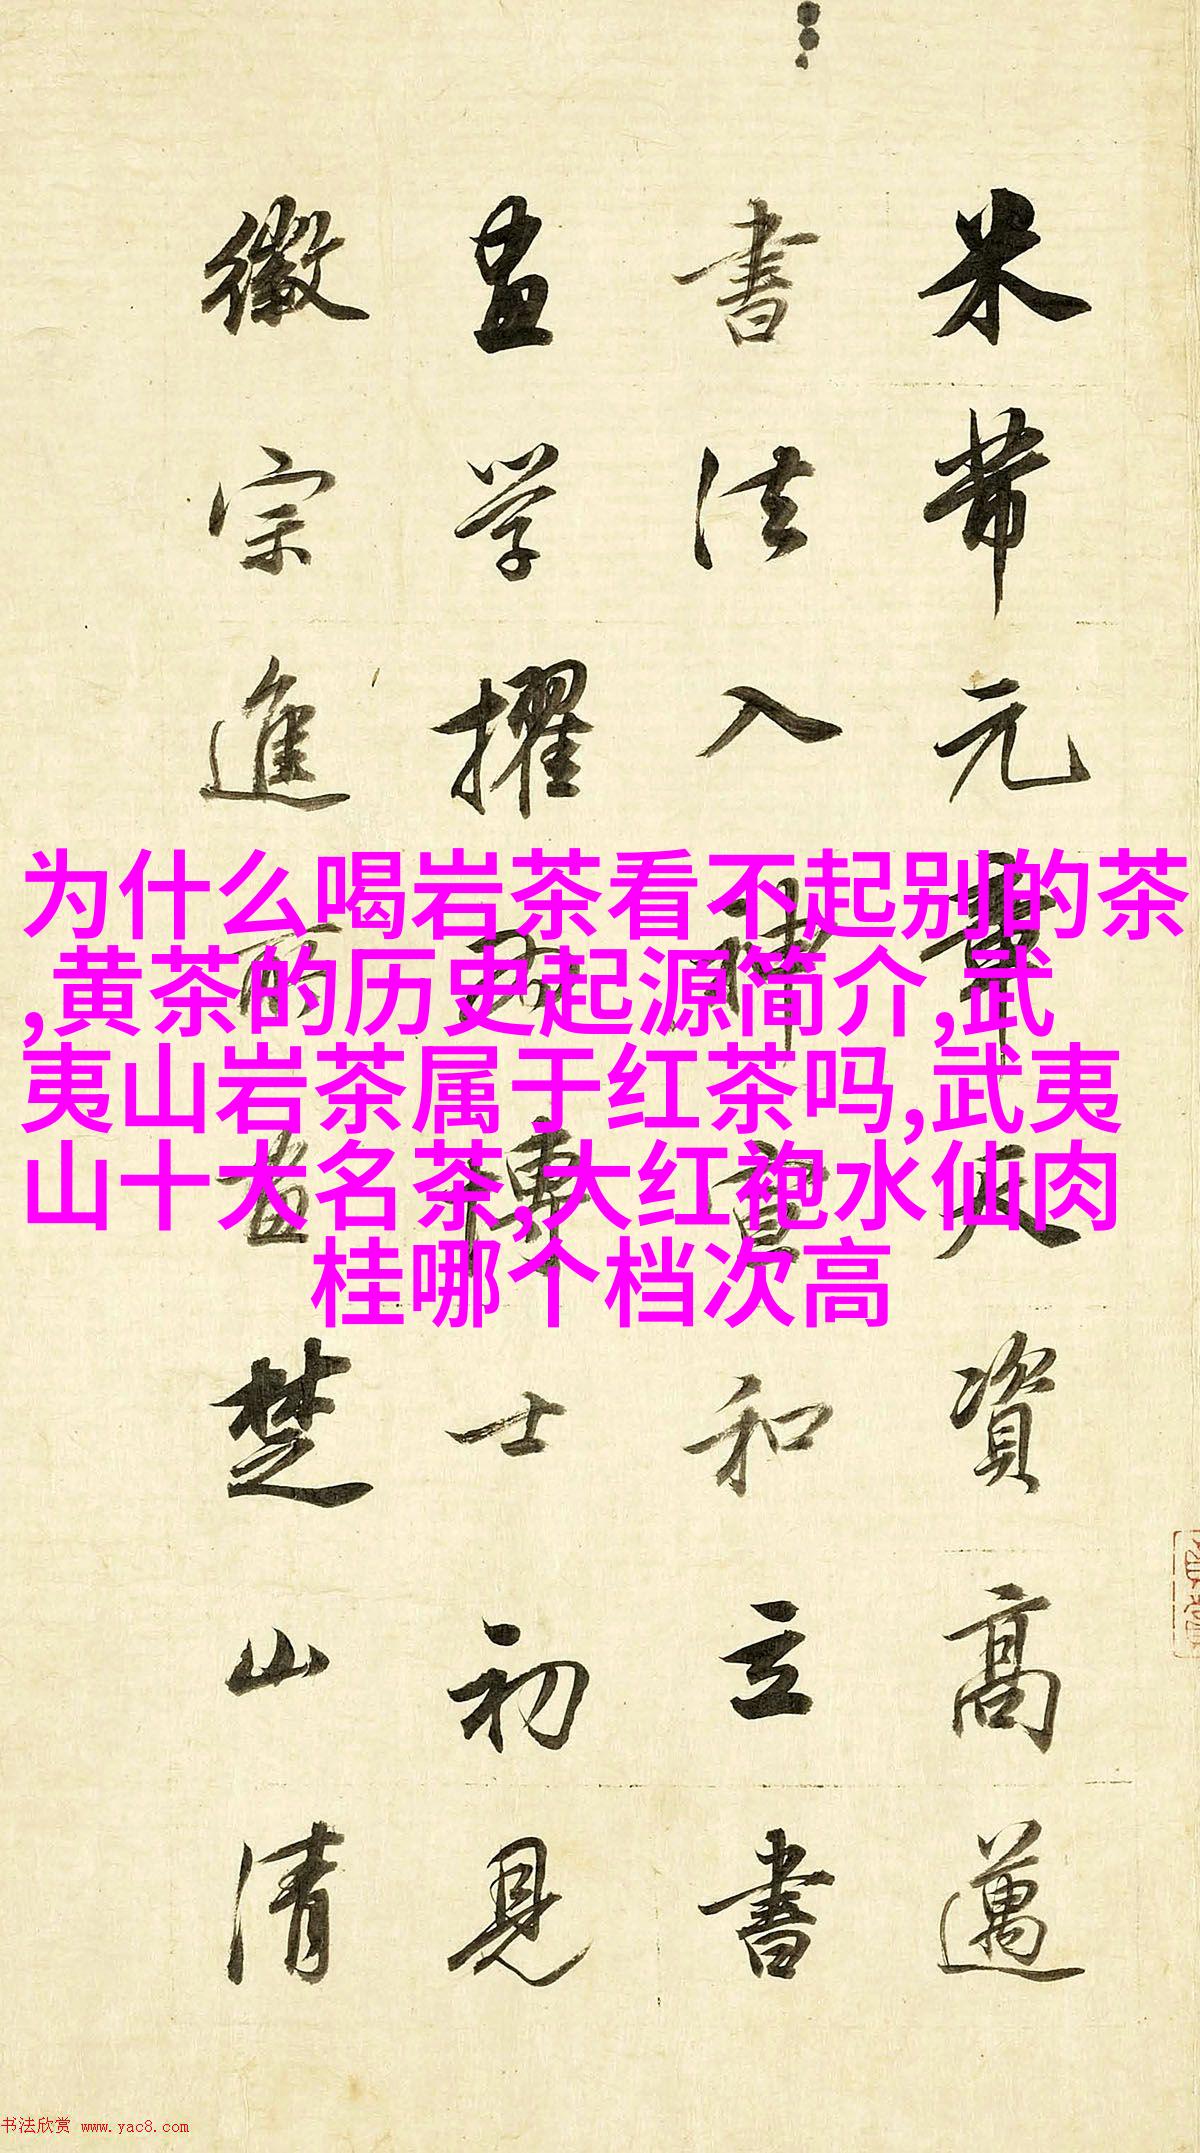 米芾元章天資高邁
書法入神宣和立書
畫学擢為博士初見
徽宗進所畫楚山清
为什么喝岩茶看不起别的茶
,黄茶的历史起源简介,武
夷山岩茶属于红茶吗,武夷
山十大名茶,大红袍水仙肉
桂哪个档次高
书法欣赏 www.yac8.com